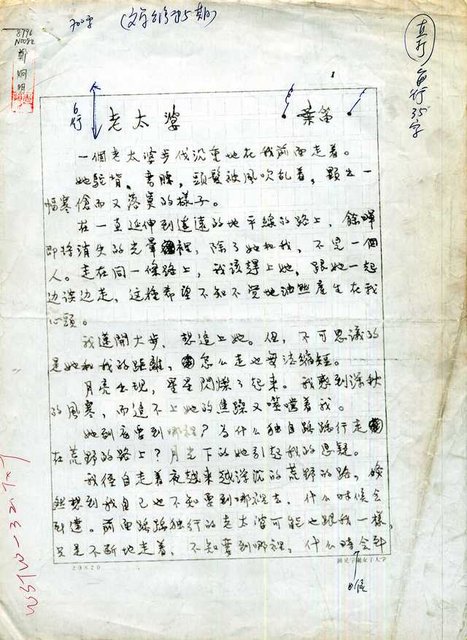 (文學台灣35期)
直行
每行35字
8796
老太婆
葉笛
一個老太婆步伐沉重地在我前面走着。
她駝背、頭髮被風吹乱着,顯出一
幅寒傖而又落莫的樣子。
在一直延伸到遙遠的地平線的路上,餘暉
即將消失的光暈裡,除了她和我,不見一個
人。走在同一條路上,我該趕上她,跟她一起
边談边走,這種希望不知不覺地油然產生在我
心頭。
我邁開大步,想追上她。但,不可思議的
是她和我的距離,怎么走也無法縮短。
月亮出現,星星閃爍了起來。我感到深秋
的風寒,而追不上她的焦躁又燃燒着我。
她到底要到哪裡?為什么独自踽踽行走
在荒野的路上?月光下的她引起我的思疑。
我径自走着夜越來越深沉的荒野的路,倏
然想到我自己也不知要到哪裡去,什么時候会
到達。前面踽踽独行的老太婆可能也跟我一樣,
只是不断地走着,不知要到哪裡,什么時会到
時候
20×20